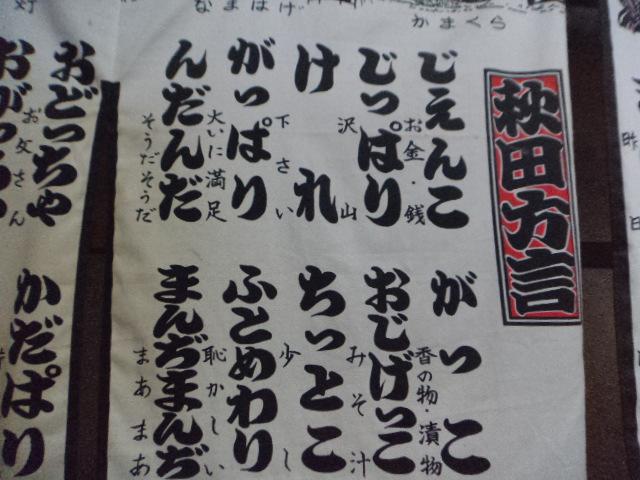 かまくら
なまはげ
秋田方言
じえんこ
お金・銭
じっぱり
沢山
けれ
下さい
がっぱり
大いに満足
んだんだ
そうだそうだ
がっこ
香の物・漬物
おじげっこ
みそ汁
ちっとこ
少し
ふとめわり
恥かしい
まんぢまんぢ
まあまあ
おどっちゃ
お父さん
かだぱり
昨
日